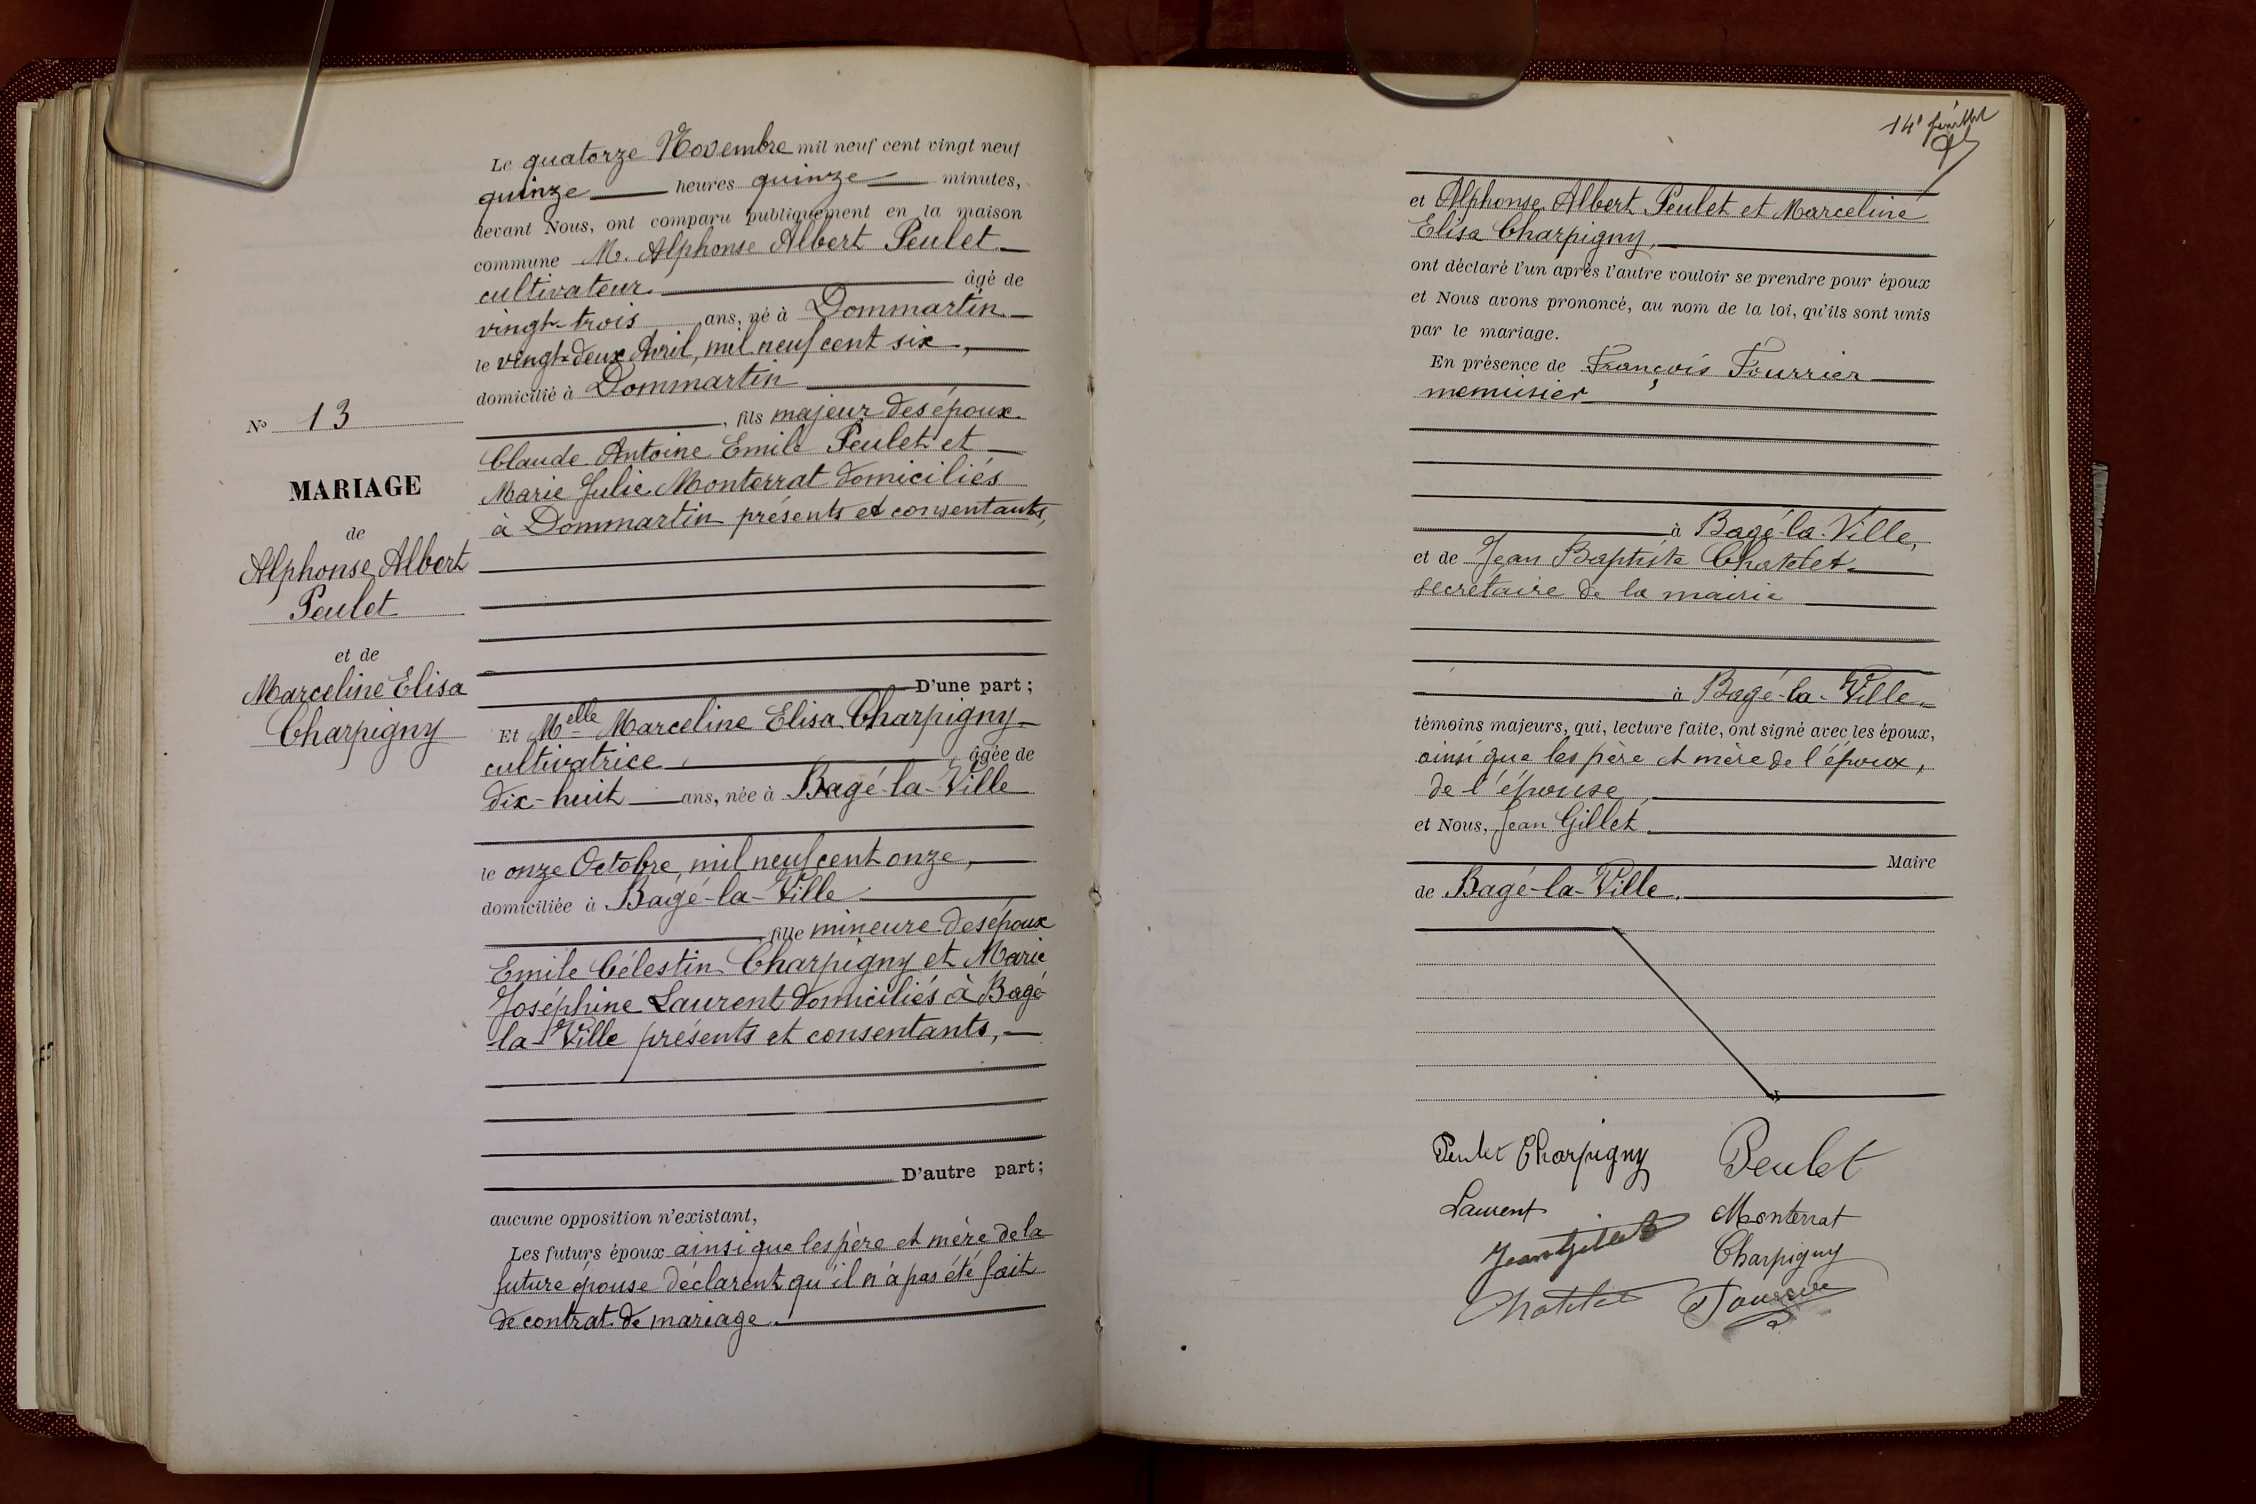 N° 13
MARIAGE
de
Alphonse Albert
Peulet
et de
Marceline Elisa
Charpigny
Le quatorze Novembre mil neuf cent vingt neuf
quinze heures quinze minutes,
devant Nous, ont comparu publiquement en la maison
commune M. Alphonse Albert Peulet
cultivateur âgé de
vingt-trois ans, né à Dommartin
le vingt-deux Avril, mil neuf cent six,
domicilié à Dommartin
, fils majeur des époux
Claude Antoine Emile Peulet et
Marie Julie Monterrat domiciliés
à Dommartin présents et consentants,
D'une part ;
Et Melle Marceline Elisa Charpigny
cultivatrice, âgée de
dix-huit ans, née à Bagé-la-Ville
le onze Octobre mil neuf cent onze,
domiciliée à Bagé-la-Ville
fille mineure des époux
Emile Célestin Charpigny et Marie
Joséphine Laurent domiciliés à Bagé-
-la-Ville présents et consentants,
D'autre part ;
aucune opposition n'existant,
Les futurs époux ainsi que les père et mère de la
future épouse déclarent qu'il n'a pas été fait
de contrat de mariage.
14e feuillet
et Alphonse Albert Peulet et Marceline
Elisa Charpigny,
ont déclaré l'un après l'autre vouloir se prendre pour époux
et Nous avons prononcé, au nom de la loi, qu'ils sont unis
par le mariage.
En présence de François Fourrier
menuisier
à Bagé-la-Ville,
et de Jean Baptiste Chatelet
secrétaire de la mairie
à Bagé-la-Ville
témoins majeurs, qui, lecture faite, ont signé avec les époux,
ainsi que les père et mère de l'époux,
de l'épouse
et Nous, Jean Gillet
Maire
de Bagé-la-Ville.
Peulet Charpigny Peulet
Laurent Monterrat
Jean Gillet Charpigny
Chatelet Fourrier